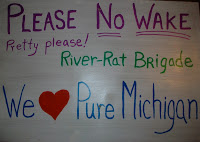 Please No Wake
Pretty please!
River-Rat Brigade
We ♥ Pure Michigan